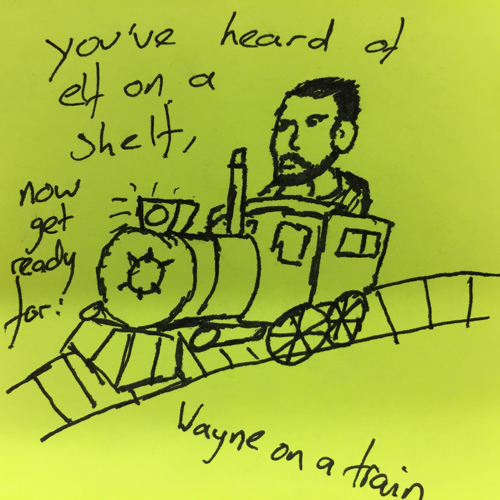 you've heard of
elf on a
shelf,
now
get
ready
for:
Wayne on a train